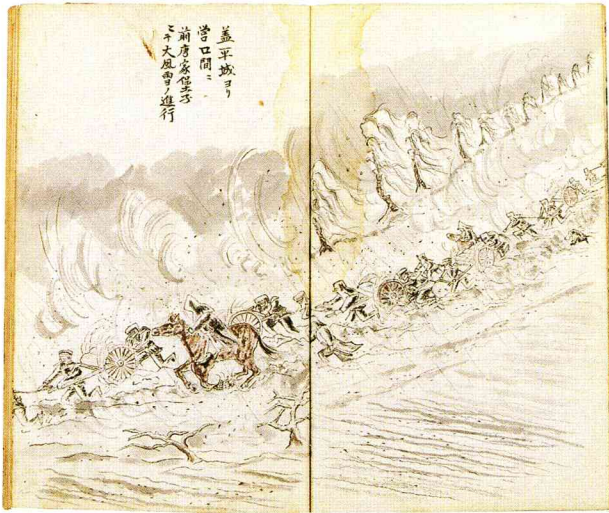 蓋平城ヨリ
営口間ニ
前唐家保土子
ニテ大風雪ノ進行